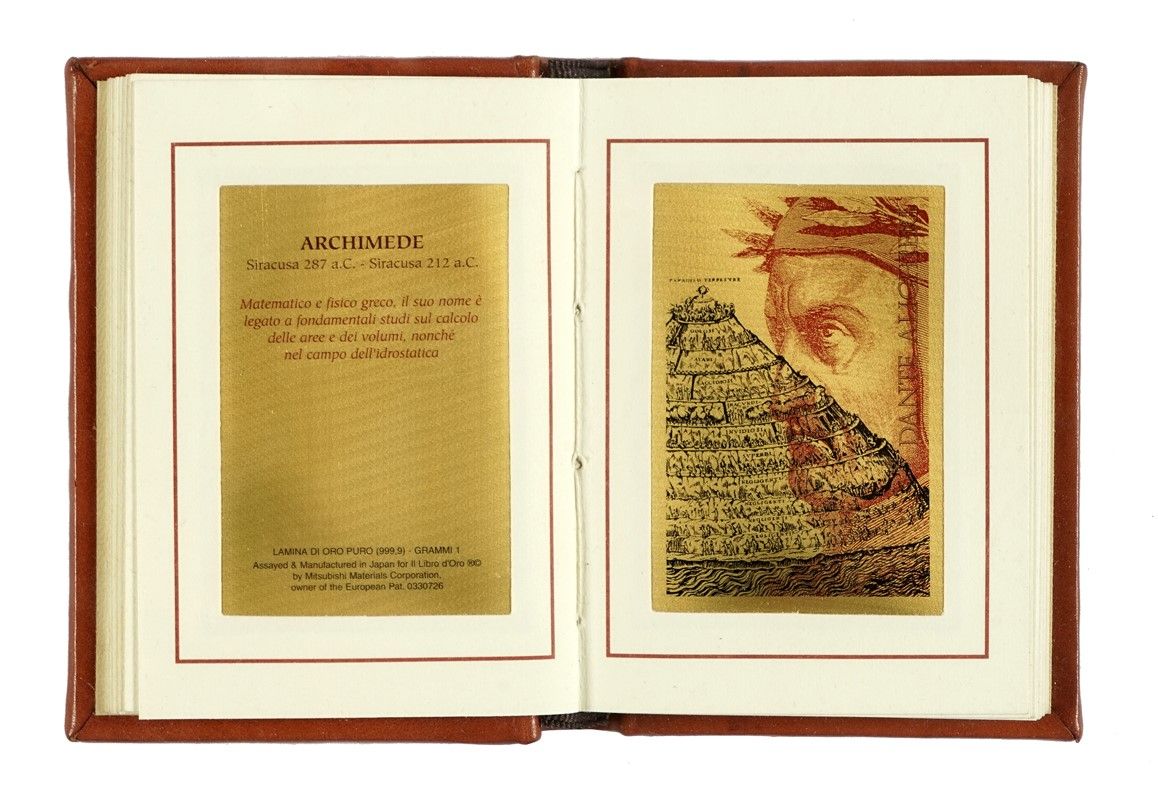 ARCHIMEDE
Siracusa 287 a.C. - Siracusa 212 a.C.
Matematico e fisico greco, il suo nome è
legato a fondamentali studi sul calcolo
delle aree e dei volumi, nonché
nel campo dell'idrostatica
LAMINA DI ORO PURO (999,9) - GRAMMI 1
Assayed & Manufactured in Japan for Il Libro d'Oro ®©
by Mitsubishi Materials Corporation,
owner of the European Pat. 0330726
DANTE ALIGHIERI
PARADISO TERRESTRE
GOLOSI
AVARI
ACCIDIOSI
IRACONDI
INVIDIOSI
SUPERBI
NEGLIGENTI
NEGLIGENTI
NEGLIGENTI